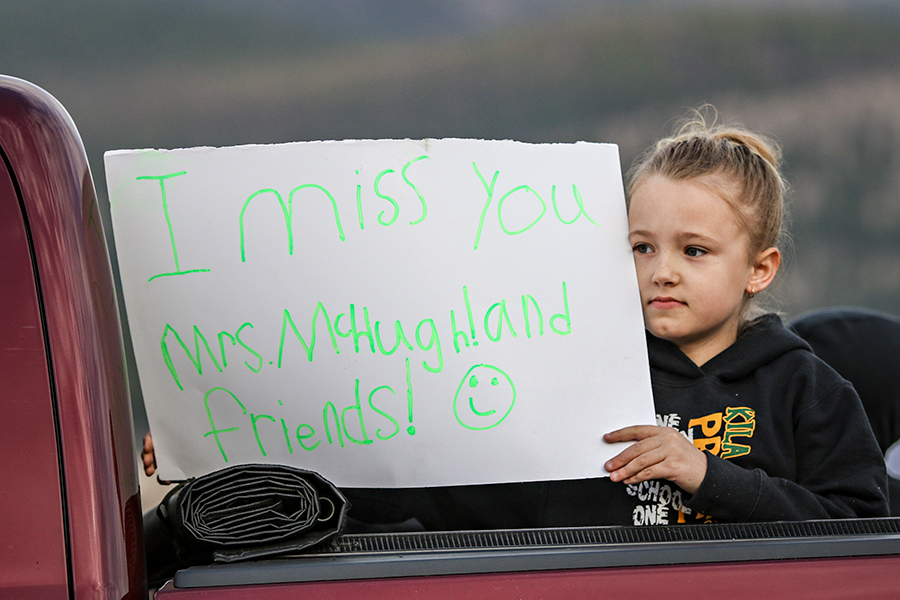 I miss You
Mrs. McHugh! and
friends!
KILA
PR
SCHOOL
ONE